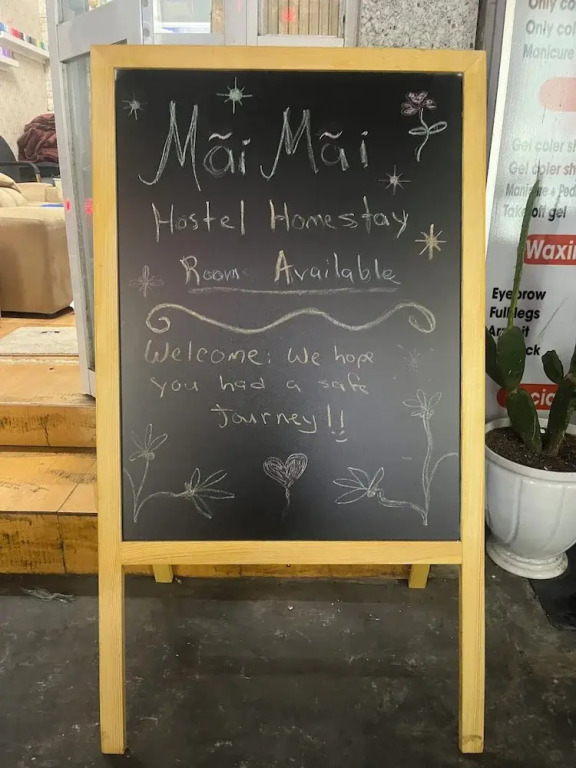 Mãi Mãi
Hostel Homestay
Room Available
Welcome: We hope
you had a safe
Journey!!
Only co
Only col
Manicure
Gel coler sh
Gel coler sh
off gel
Waxin
Eyebrow
Full legs